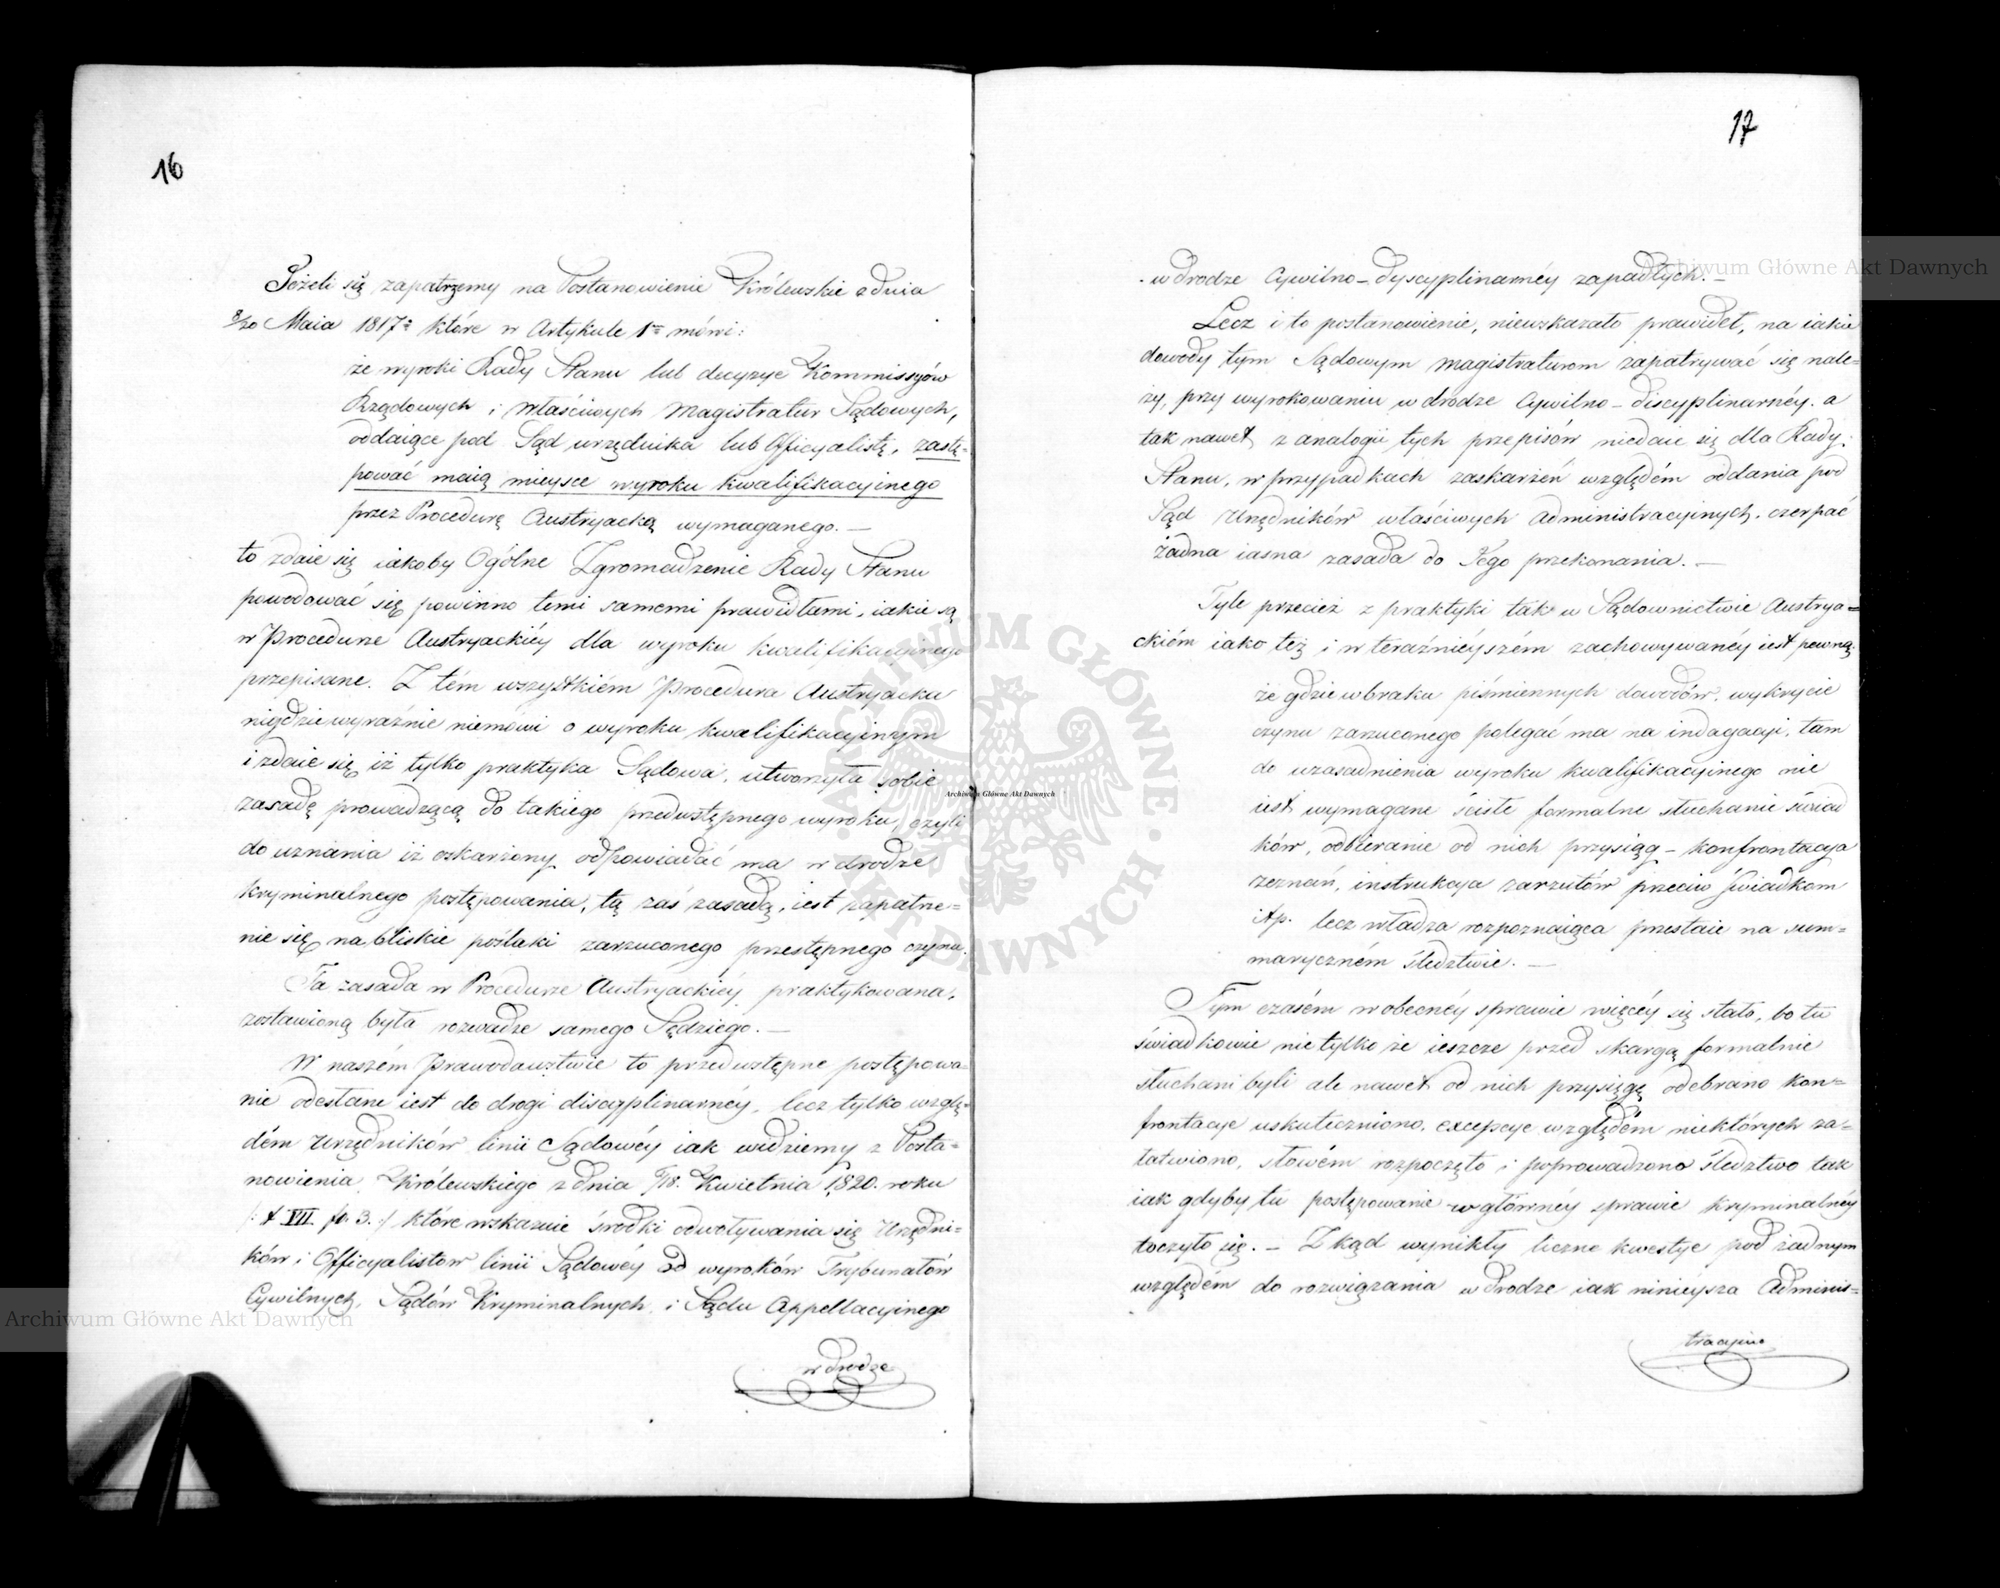 16
Jeżeli się zapatrzemy na Postanowienie Królewskie z dnia
8/20 Maia 1817 r. które w Artykule 1m mówi:
że wyroki Rady Stanu lub decyzye Kommissyów
Rządowych i właściwych Magistratur Sądowych,
oddaiące pod Sąd urzędnika lub Officyalistę, zastę-
pować maią mieysce wyroku kwalifikacyinego
przez Procedurę Austryacką wymaganego. —
to zdaie się iakoby Ogólne Zgromadzenie Rady Stanu
powodować się powinno temi samemi prawidłami, iakie są
w Procedurze Austryackiéy dla wyroku kwalifikacyinego
przepisane. Z tém wszystkiém Procedura Austryacka
nigdzie wyraźnie niemówi o wyroku kwalifikacyinym
i zdaie się iż tylko praktyka Sądowa, utworzyła sobie
zasadę prowadzącą do takiego przedwstępnego wyroku, czyli
do uznania iż oskarżony odpowiadać ma w drodze
kryminalnego postępowania, tą zaś zasadą, iest zapatrze=
nie się na bliskie poszlaki zarzuconego przestępnego czynu.
Ta zasada w Procedurze Austryackiéy praktykowana,
zostawioną była rozwadze samego Sędziego. —
W naszém Prawodawstwie to przedwstępne postępowa-
nie odesłane iest do drogi discyplinarnéy, lecz tylko wzglę-
dém Urzędników linii Sądowéy iak widziemy z Posta-
nowienia Królewskiego z dnia 7/18. Kwietnia 1820. roku
/: t VII. fo 3. :/ które wskazuie środki odwoływania się Urzędni-
ków i Officyalistow linii Sądowéy od wyroków Trybunałów
Cywilnych, Sądów Kryminalnych i Sądu Appellacyinego
w drodze
17
w drodze Cywilno-dyscyplinarnéy zapadłych. —
Lecz i to postanowienie, niewskazało prawideł, na iakie
dowody tym Sądowym Magistraturom zapatrywać się nale-
ży, przy wyrokowaniu w drodze Cywilno-discyplinarnéy. a
tak nawet z analogii tych przepisów niedaie się dla Rady
Stanu, w przypadkach zaskarżeń względém oddania pod
Sąd Urzędników właściwych administracyinych, czerpać
żadna iasna zasada do Jego przekonania. —
Tyle przecież z praktyki tak w Sądownictwie Austrya=
ckiém iako też i w teraźnieyszém zachowywanéy iest pewną.
że gdzie w braku piśmiennych dowodów, wykrycie
czynu zarzuconego polegać ma na indagacyi, tam
do uzasadnienia wyroku kwalifikacyinego nie
iest wymagane ściśle formalne słuchanie świad
ków, odbieranie od nich przysiąg – konfrontacya
zeznań, instrukcya zarzutów przeciw świadkom
itp. lecz władza rozpoznaiąca przestaie na sum=
maryczném śledztwie. —
Tym czasém w obecnéy sprawie więcéy się stało, bo tu
świadkowie nietylko że ieszcze przed skargą formalnie
słuchani byli ale nawet od nich przysięgę odebrano kon=
frontacye uskuteczniono, excepcye względém niektórych za-
łatwiono, słowém rozpoczęto i poprowadzono śledztwo tak
iak gdyby tu postępowanie w głównéy sprawie kryminalnéy
toczyło się. — Z kąd wynikły liczne kwestye pod żadnym
względém do rozwiązania w drodze iak ninieysza Adminis-
tracyine
Archiwum Główne Akt Dawnych
Archiwum Główne Akt Dawnych
Archiwum Główne Akt Dawnych
ARCHIWUM GŁÓWNE AKT DAWNYCH